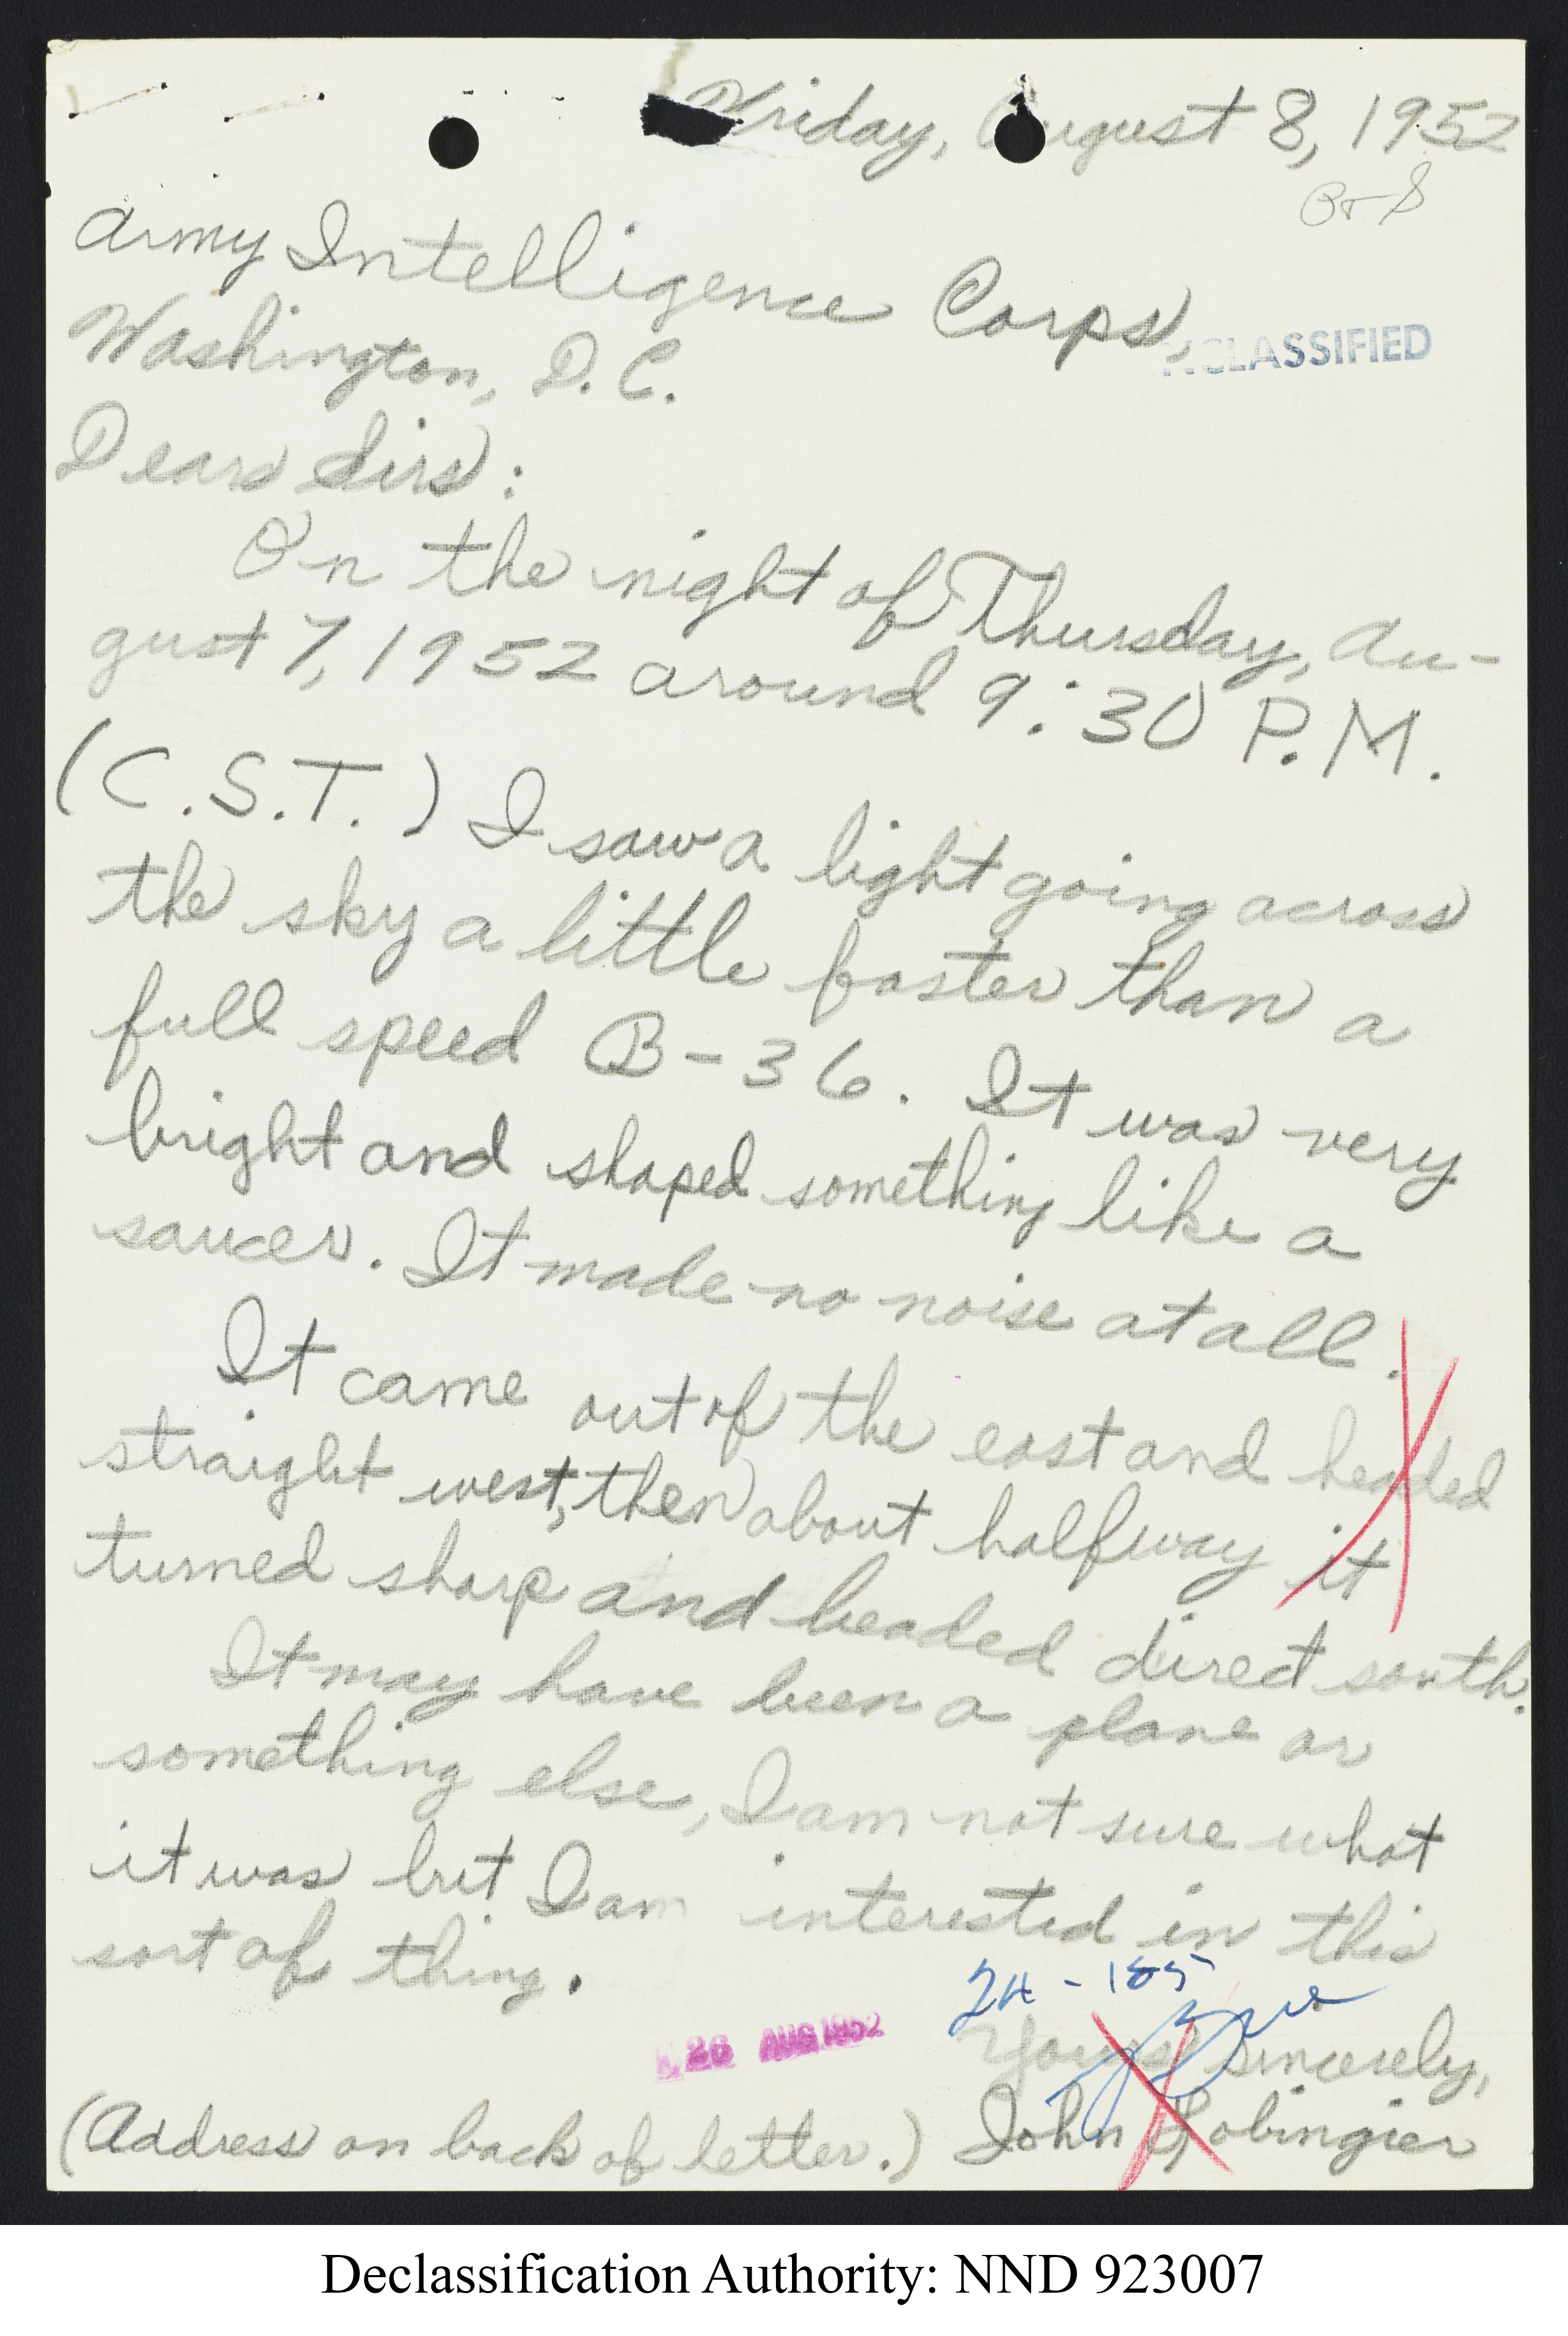 Friday, August 8, 1952
Army Intelligence Corps,
UNCLASSIFIED
Washington, D. C.
Dear Sirs:
On the night of Thursday, Au-
gust 7, 1952 around 9:30 P.M.
(C.S.T.) I saw a light going across
the sky a little faster than a
full speed B-36. It was very
bright and shaped something like a
saucer. It made no noise at all.
It came out of the east and headed
straight west, then about halfway it
turned sharp and headed direct south.
It may have been a plane or
something else, I am not sure what
it was but I am interested in this
sort of thing.
26 AUG 1952
Yours sincerely,
(Address on back of letter.) John Lobingier
Declassification Authority: NND 923007